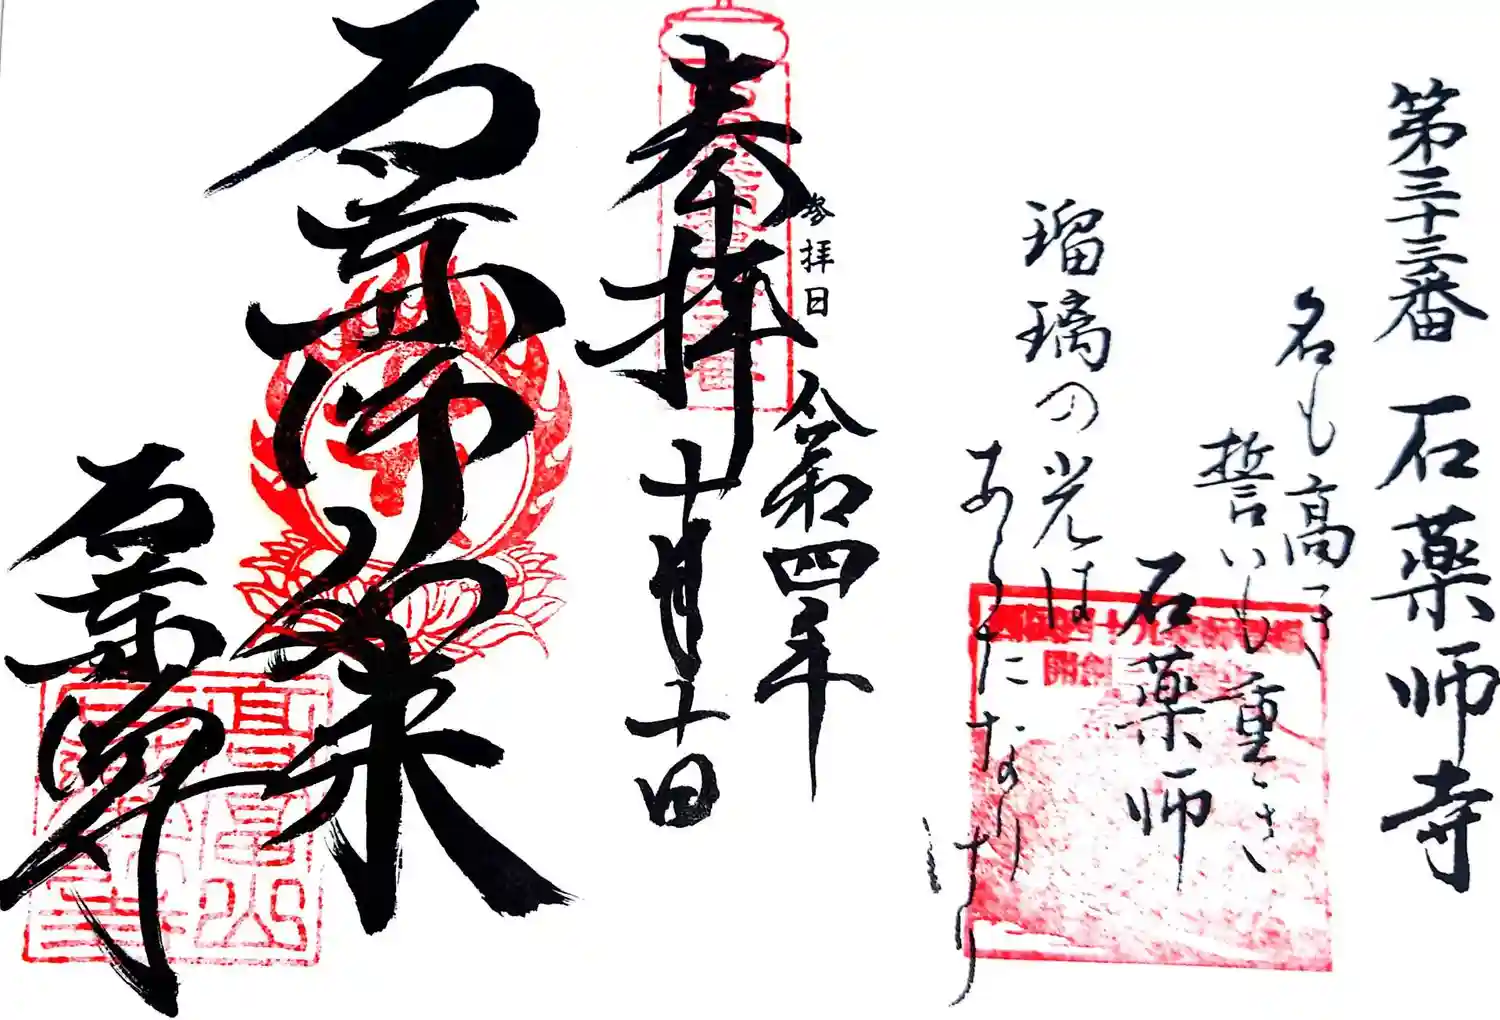 第三十三番 石薬師寺
名も高き
誓いも重き
石薬師
瑠璃の光は
あらたなりけり
参拝日
令和四年
十月十日
奉拝
石薬師如来
石薬師寺
開創
高富山
石薬師寺